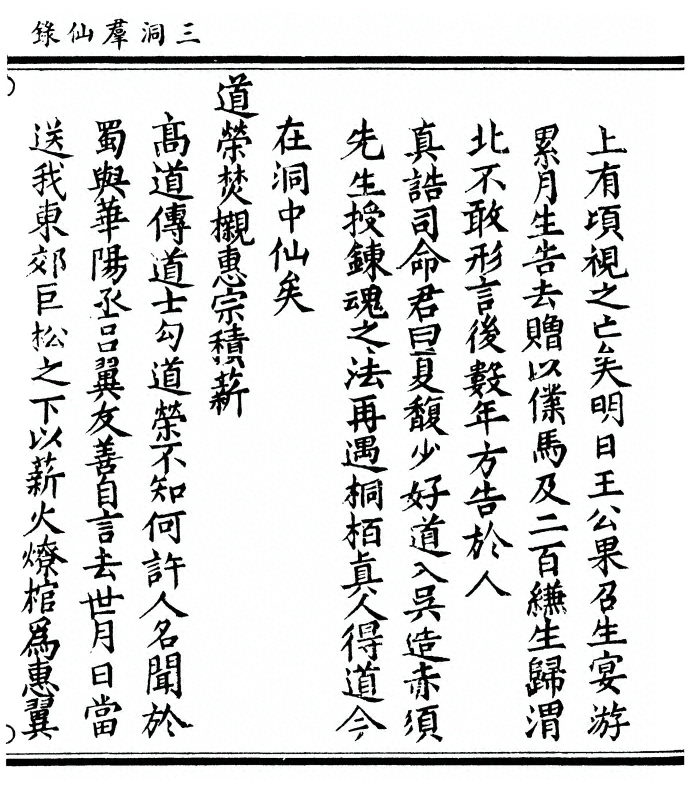 三洞羣仙錄
上有頃視之亡矣明日王公果召生宴游
累月生告去贈以僕馬及二百縑生歸渭
北不敢形言後數年方告於人
真誥司命君曰夏馥少好道入吳造赤須
先生授鍊魂之法再遇桐栢真人得道今
在洞中仙矣
道榮焚櫬惠宗積薪
高道傳道士勾道榮不知何許人名聞於
蜀與華陽丞呂翼友善自言去世月日當
送我東郊巨松之下以薪火燎棺爲惠翼